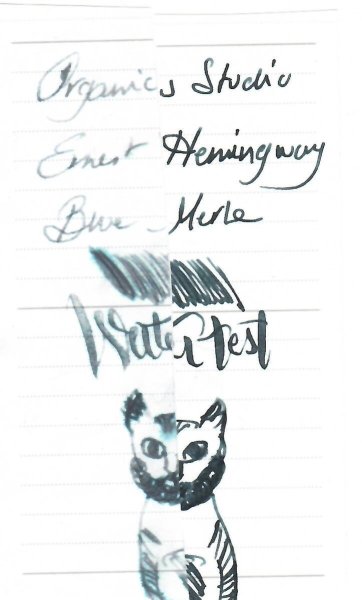 Organics Studio
Ernest Hemingway
Blue Merle
Water test